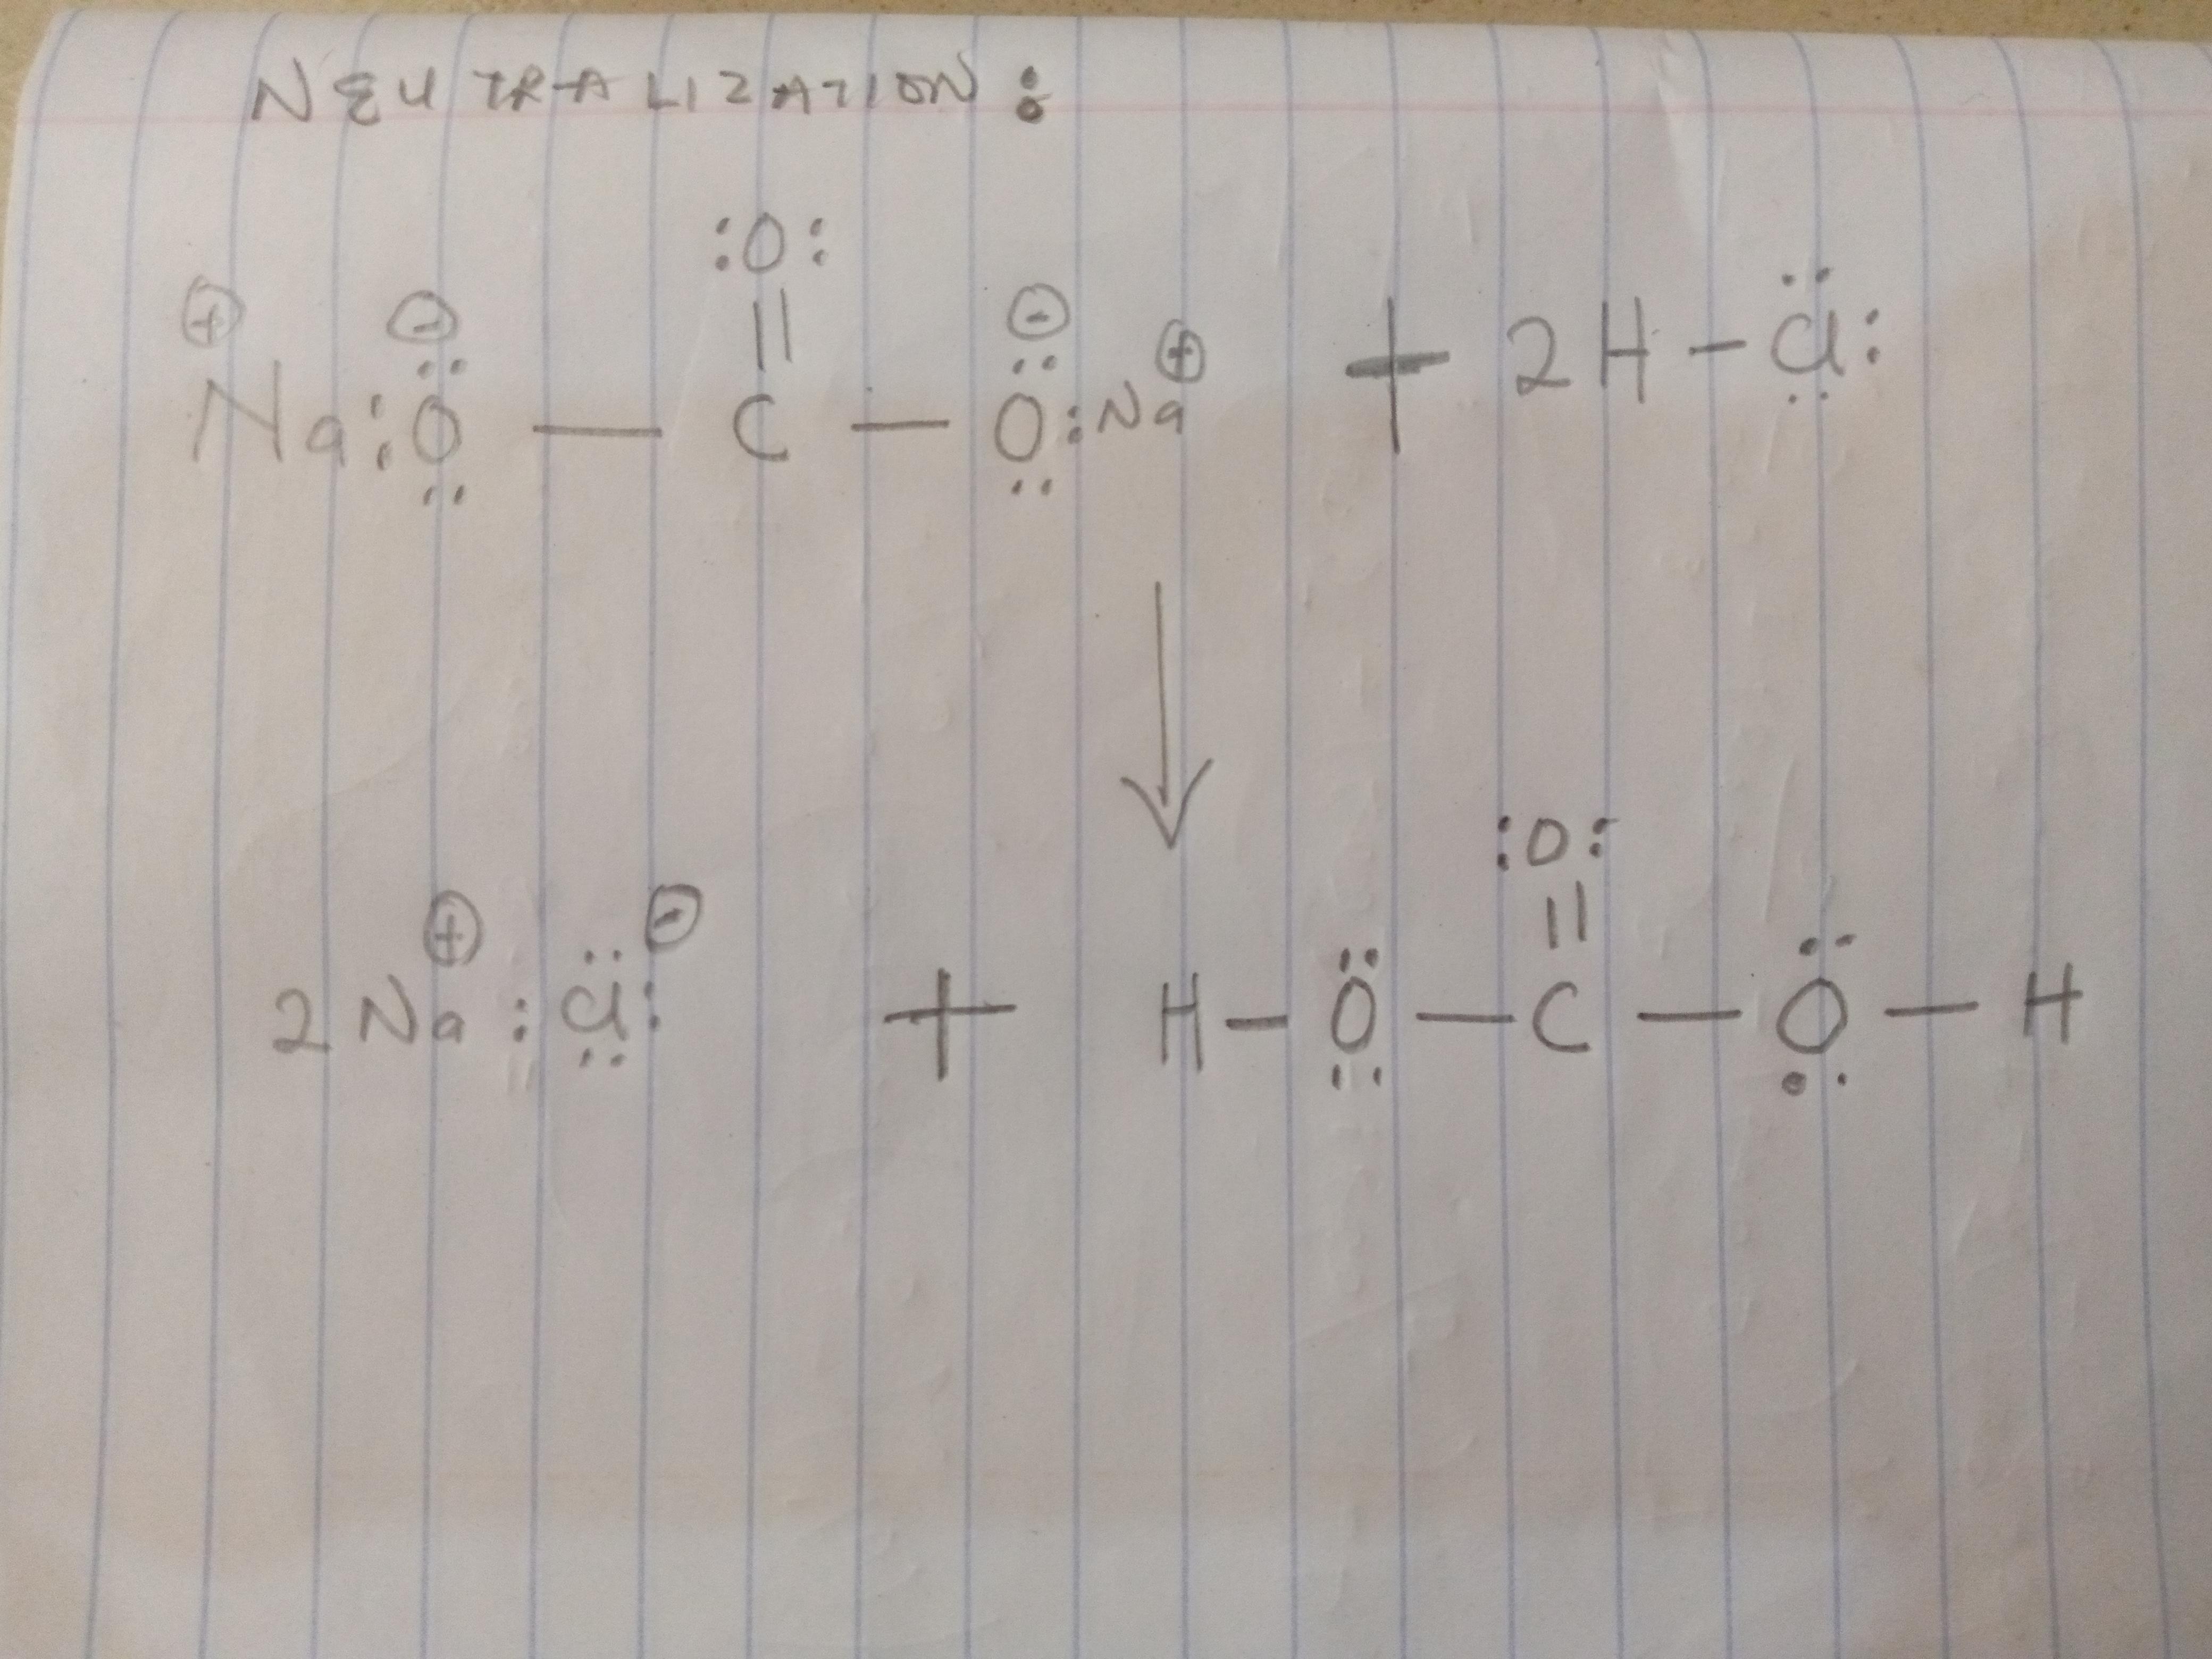 NEUTRALIZATION:
:O:
⊕ ⊖ || ⊖ ⊕
Na:Ö — C — Ö:Na + 2H–Cl:
:O:
⊕ ⊖ ||
2Na :Cl: + H–Ö — C — Ö — H